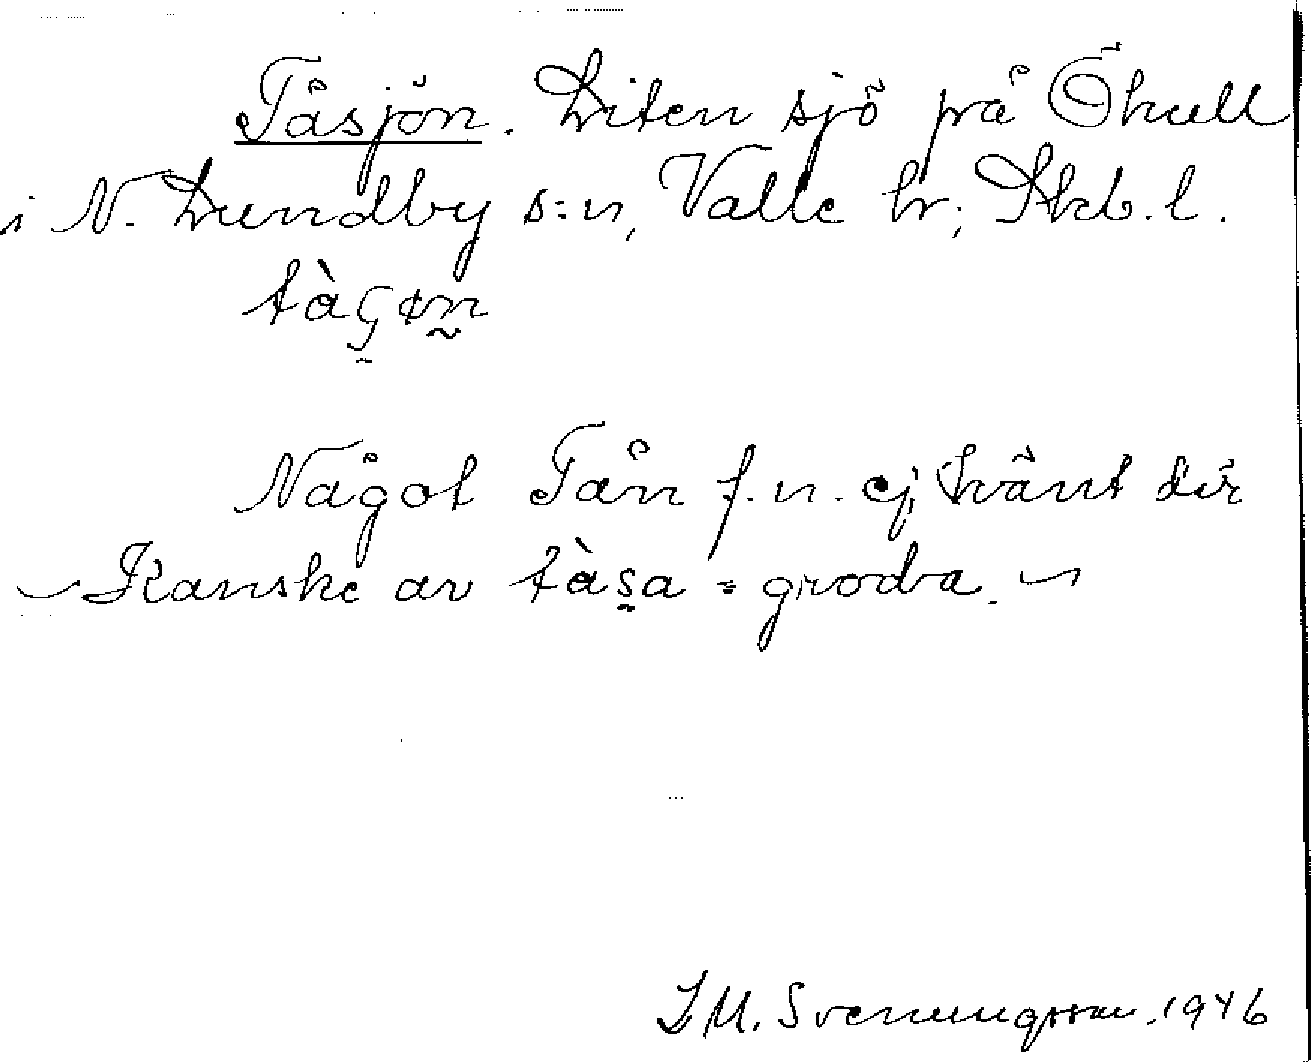 Tåsjön. Liten sjö på Ökull
i N. Lundby s:n, Valle hr, Skb. l.
Något Tån f. n. ej känt där
Kanske av tàsa = groda.
J M. Svenungsson. 1946